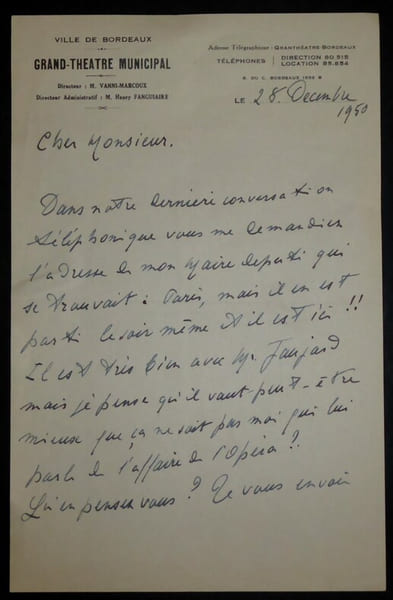 VILLE DE BORDEAUX
GRAND-THEATRE MUNICIPAL
Directeur : M. VANNI-MARCOUX
Directeur Administratif : M. Henry FANGUIAIRE
Adresse Télégraphique : GRANTHÉATRE-BORDEAUX
TÉLÉPHONES DIRECTION 80 515
LOCATION 85.854
R. DU C. BORDEAUX 1699 B
LE 28. Decembre
1950
Cher Monsieur.
Dans notre derniere conversation
téléphonique vous me demandiez
l'adresse de mon Maire député qui
se trouvait à Paris, mais il en est
parti le soir même et il est ici !!
Il est très bien avec Mr. Jaujard
mais je pense qu'il vaut peut-être
mieux que ça ne soit pas moi qui lui
parle de l'affaire de l'Opéra ?
Qu'en pensez vous ? Je vous envoie